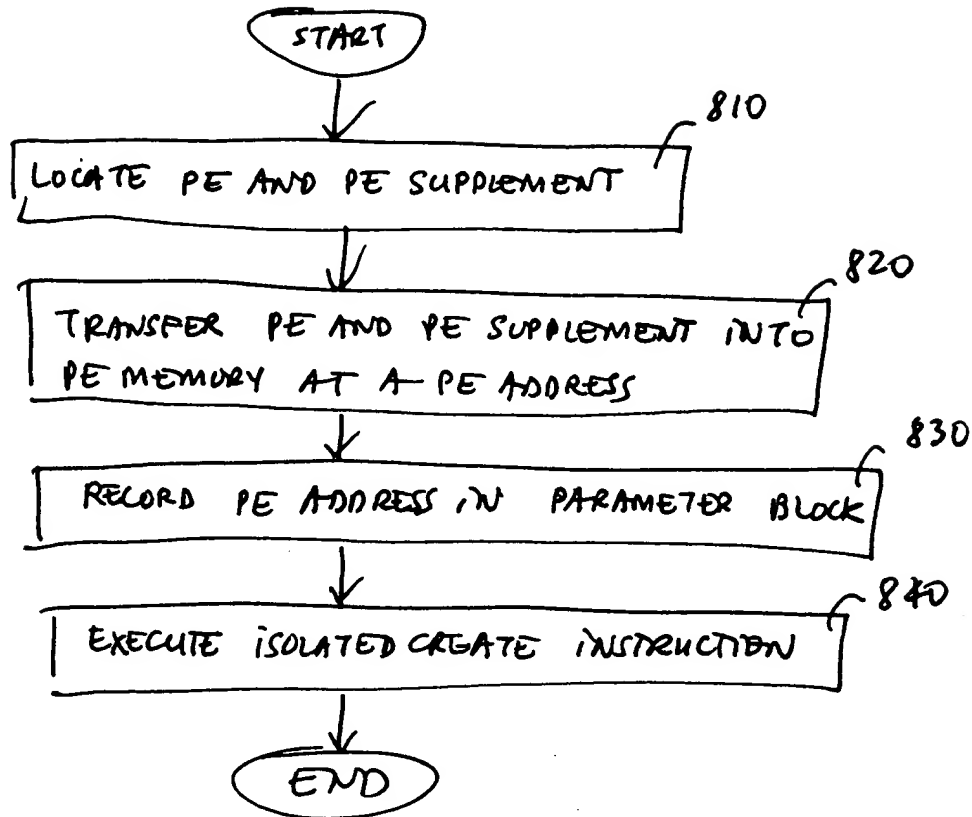 START
810
LOCATE PE AND PE SUPPLEMENT
820
TRANSFER PE AND PE SUPPLEMENT INTO
PE MEMORY AT A PE ADDRESS
830
RECORD PE ADDRESS IN PARAMETER BLOCK
840
EXECUTE ISOLATED CREATE INSTRUCTION
END